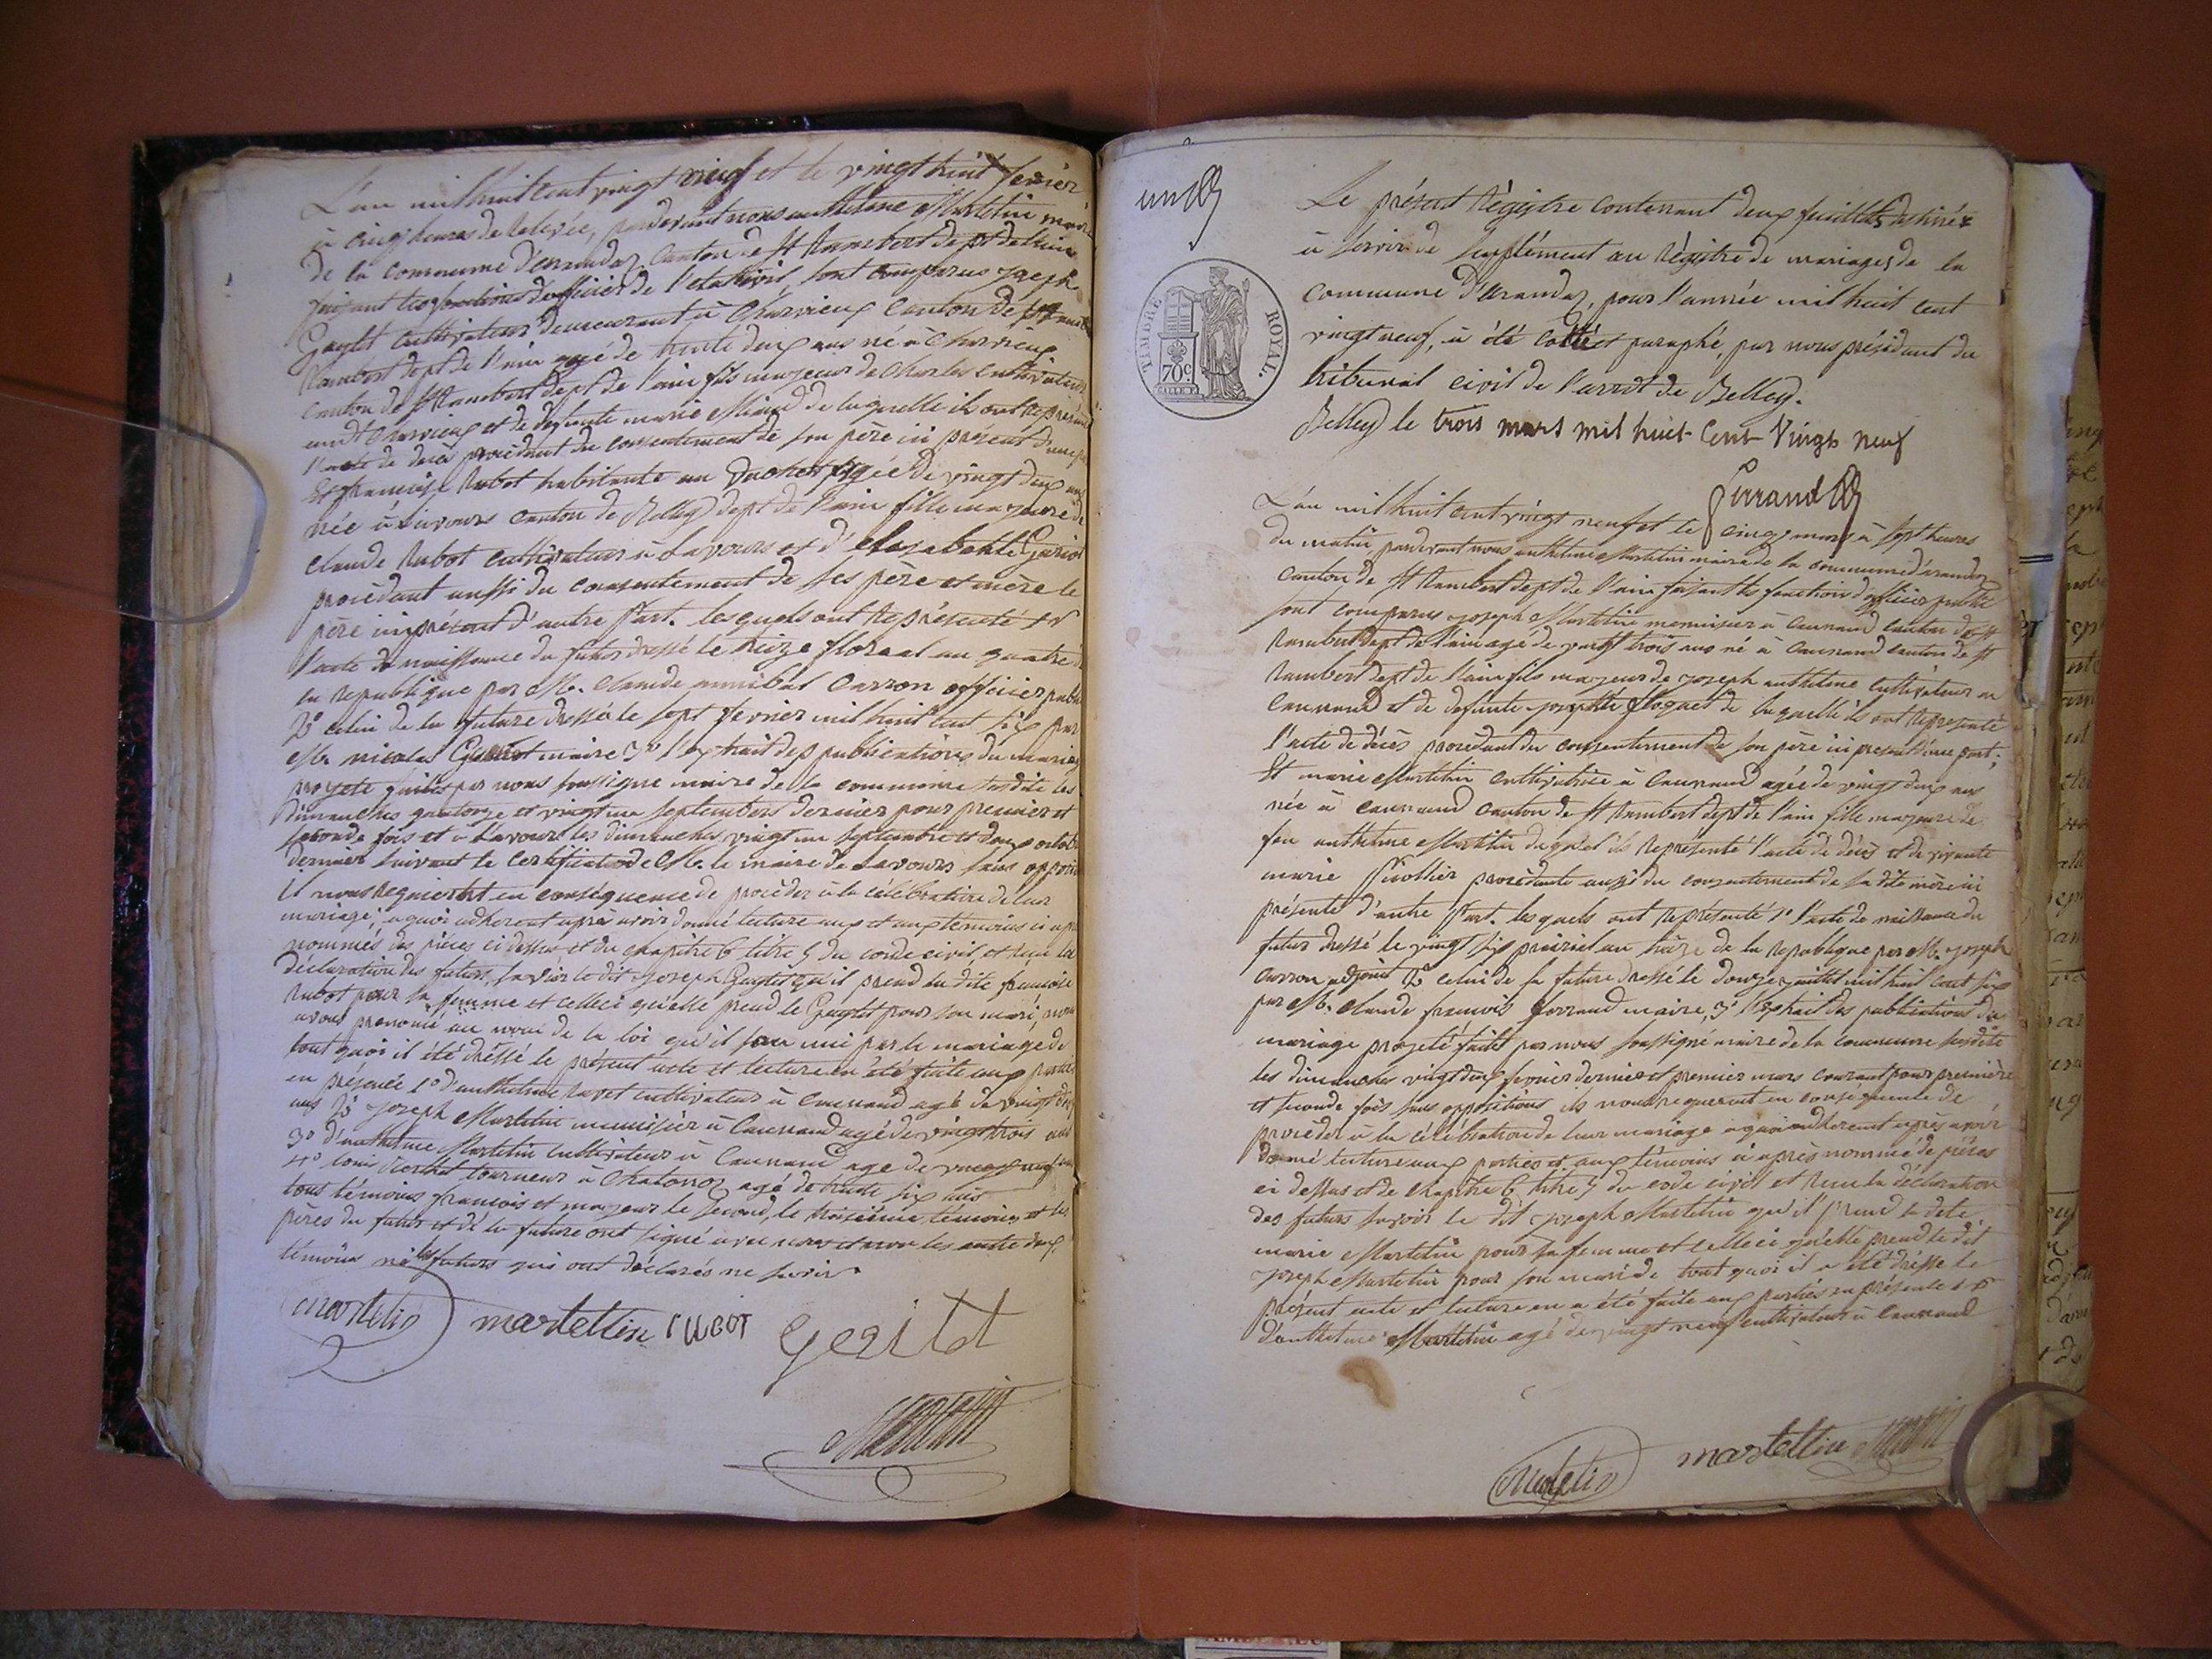 L'an mil huit cent vingt neuf et le vingt huit fevrier
à cinq heures de relevée, pardevant nous anthelme Martelin maire
de la commune d'arandas canton de St Rambert dept de l'ain
faisant les fonctions d'officier de l'etat civil, sont comparus joseph
cultivateur demeurant à Charvieux canton de St
Rambert dept de l'ain agé de trente deux ans né à Charvieux
canton de St Rambert dept de l'ain fils majeur de Charles cultivateur
audt Charvieux et de defunte marie de laquelle ils ont représenté
l'acte de décès procédant du consentement de son père ici présent d'une part
Et françoise Rubot habitante au agée de vingt deux ans
née à Lavours canton de Belley dept de l'ain fille majeure de
claude Rubot cultivateur à Lavours et d'
procédant aussi du consentement de ses père et mère le
père ici présent d'autre part. lesquels ont représenté 1º
l'acte de naissance du futur dressé le treize floreal an quatre
la republique par Mr. Claude annibal Carron officier public
2º celui de la future dressé le sept fevrier mil huit cent six par
Mr. nicolas maire 3º l'extrait des publications du mariage
projeté faites par nous soussigné maire de la commune susdite les
dimanches quatorze et vingt un septembre dernier pour premier et
seconde fois et à Lavours les dimanches vingt un septembre et octobre
dernier suivant le certificat de Mr. le maire de Lavours sans opposition
Il nous requierent en conséquence de procéder à la célébration de leur
mariage, a quoi adherent après avoir donné lecture aux et aux témoins ci après
nommés des pièces ci dessus et du chapitre 6 titre 5 du code civil, et reçu la
déclaration des futurs, savoir le dit joseph qu'il prend la dite françoise
Rubot pour sa femme et celleci qu'elle prend le pour son mari, nous
avons prononcé au nom de la loi qu'il sont uni par le mariage de
tout quoi il été dressé le présent acte et lecture en été faite aux parties
en présence 1º d'anthelme Ravet cultivateur à Caunand agé de vingt
ans 2º joseph Martelin menuisier à Caunand agé de vingt trois ans
3º d'anthelme Martelin cultivateur à Caunand agé de vingt neuf ans
4º louis tourneur à agé de trente six ans
tous témoins français et majeur le second, le troisième témoins et les
pères du futur et de la future ont signé avec nous et non les autre deux
témoins ni les futurs qui ont déclarés ne savoir.
martelin martellin rubot
Martelin
un
Le présent Régistre contenant deux feuillets destinés
à servir de supplément au Régistre de mariages de la
commune d'arandas, pour l'année mil huit cent
vingt neuf, à été cotté et paraphé, par nous président du
tribunal civil de l'arrdt de Belley.
Belley le trois mars mil huit Cent Vingt neuf
ferrand
TIMBRE ROYAL.
70c.
L'an mil huit cent vingt neuf et le cinq mars à sept heures
du matin pardevant nous anthelme Martelin maire de la commune d'arandas
canton de St Rambert dept de l'ain faisant les fonction d'officier public
sont comparus joseph Martelin menuisier à Caunand canton de St
Rambert dept de l'ain agé de vingt trois ans né à Caunand canton de St
Rambert dept de l'ain fils majeur de joseph anthelme cultivateur au
Caunand et de defunte josephte floquet de laquelle ils ont représenté
l'acte de décès procédant du consentement de son père ici présent d'une part;
Et marie Martelin cultivatrice à Caunand agée de vingt deux ans
née à caunand canton de St Rambert dept de l'ain fille majeure de
feu anthelme Martelin duquel ils représenté l'acte de décès et de vivante
marie procèdante aussi du consentement de sa dite mère ici
présente d'autre part. lesquels ont représenté 1º l'acte de naissance du
futur dressé le vingt six prairial an treize de la republique par Mr. joseph
Carron adjoint 2º celui de la future dressé le douze juillet mil huit cent six
par Mr. Claude françois ferrand maire, 3º l'extrait des publications du
mariage projeté faites par nous soussigné maire de la commune susdite
les dimanches vingt deux fevrier dernier et premier mars courant pour première
et seconde fois sans oppositions ils nous requerent en conséquence de
procéder à la célébration de leur mariage a quoi adherent après avoir
donné lecture aux parties et aux témoins ci après nommé de pièces
ci dessus et de chapitre 6 titre 5 du code civil et reçu la déclaration
des futurs savoir le dit joseph Martelin qu'il prend la dite
marie Martelin pour sa femme et celleci qu'elle prend le dit
joseph Martelin pour son mari de tout quoi il a été dressé le
présent acte et lecture en a été faite aux parties en présence 1º
d'anthelme Martelin agé de vingt neuf cultivateur à Caunand
martelin martellin Martelin